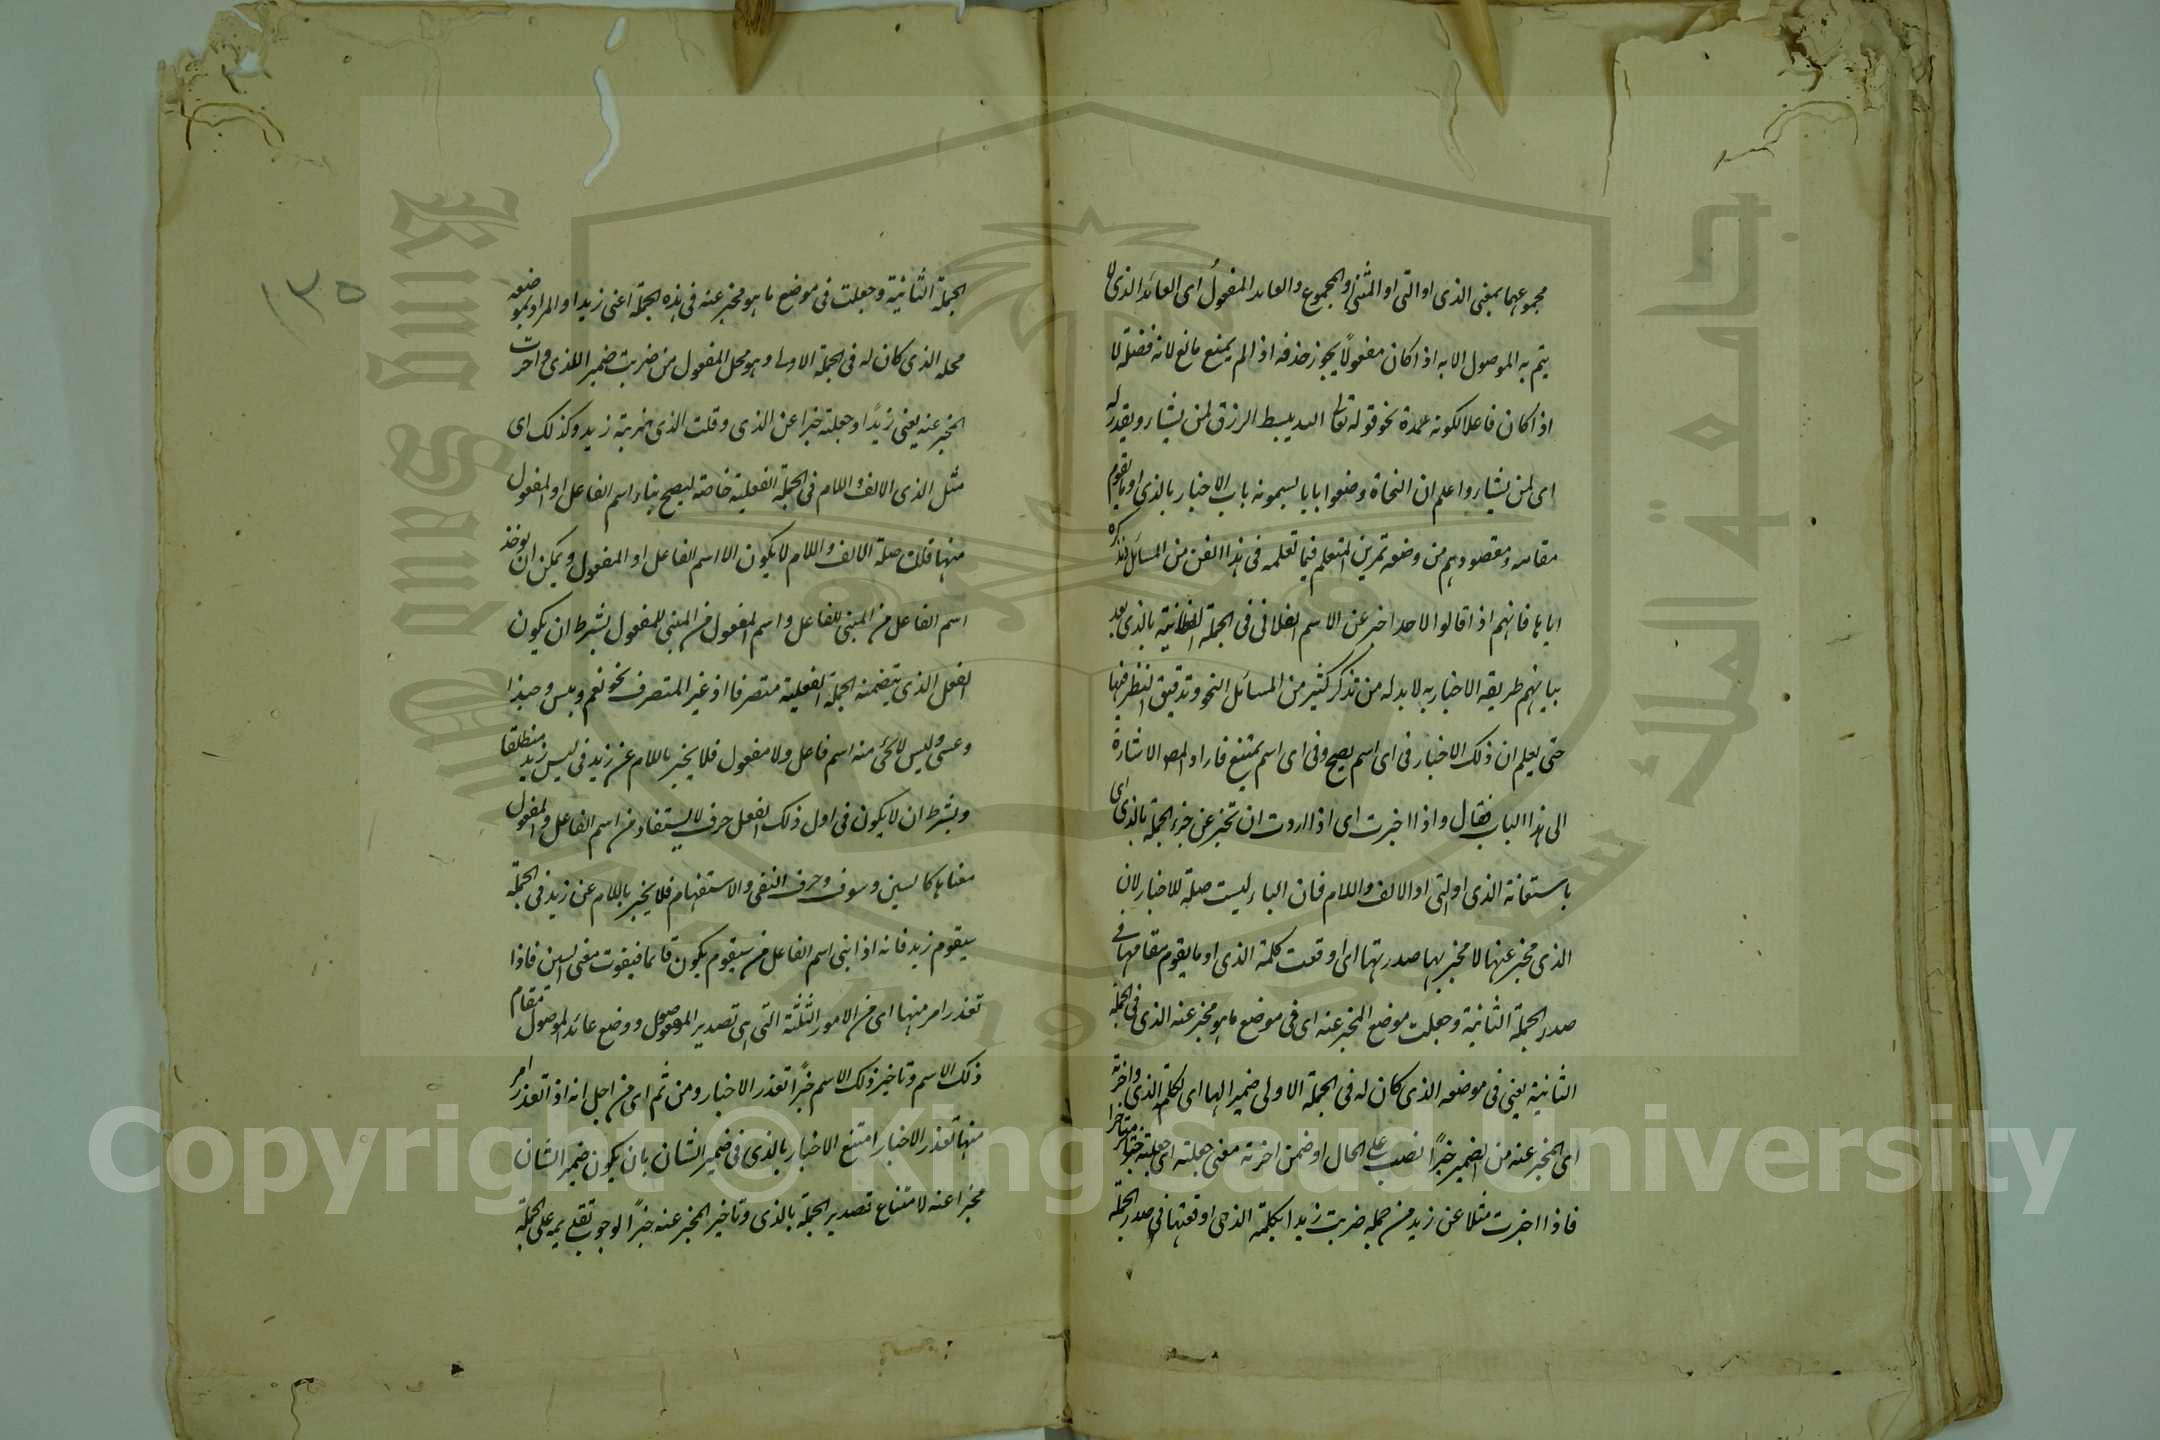 مجموعهما بمعنى الذى او التى او المثنى او المجموع والعائد المفعول اى العائد الذى لا
يتم به الموصول الا به اذا كان مفعولًا يجوز حذفه اذا لم يمنع مانع لانه فضلة لا
اذا كان فاعلا لكونه عمدة نحو قوله تعالى الله يبسط الرزق لمن يشاء ويقدر له
اى لمن يشاء واعلم ان النحاة وضعوا بابا يسمونه باب الاخبار بالذى او ما يقوم
مقامه ومقصودهم من وضعه تمرين المتعلم فيما تعلمه فى هذا الفن من المسائل وتذكره
اياها فانهم اذا قالوا لاحد اخبر عن الاسم الفلانى فى الجملة الفلانية بالذى بعد
بيانهم طريقه الاخبار به لا بد له من تذكر كثير من المسائل النحو وتدقيق النظر فيها
حتى يعلم ان ذلك الاخبار فى اى اسم يصح وفى اى اسم يمتنع فاراد المص الاشارة
الى هذا الباب فقال واذا اخبرت اى اذا اردت ان تخبر عن جزء الجملة بالذى اى
باستعانة الذى او التى او الالف واللام فان الباء ليست صلة للاخبار لان
الذى مخبر عنها لا مخبر بها صدرتها اى اوقعت كلمة الذى او ما يقوم مقامها فى
صدر الجملة الثانية وجعلت موضع المخبر عنه اى فى موضع ما هو مخبر عنه الذى فى الجملة
الثانية يعنى فى موضعه الذى كان له فى الجملة الاولى ضميرا لها اى لكلمة الذى واخرته
اى المخبر عنه من الضمير خبرًا نصب على الحال او ضمن اخرته معنى جعلته اى جعلته خبرا متاخرا
فاذا اخبرت مثلا عن زيد من جملة ضربت زيدا بكلمة الذى اوقعتها فى صدر الجملة
١٣٥
الجملة الثانية وجعلت فى موضع ما هو مخبر عنه فى هذه الجملة اعنى زيدا والمراد بموضعه
محله الذى كان له فى الجملة الاولى وهو محل المفعول من ضربت ضمير اللذى واخرت
المخبر عنه يعنى زيدًا وجعلته خبرا عن الذى وقلت الذى ضربته زيد وكذلك اى
مثل الذى الالف واللام فى الجملة الفعلية خاصة ليصح بناء اسم الفاعل او المفعول
منها فان صلة الالف واللام لا يكون الا اسم الفاعل او المفعول ويمكن ان يوخذ
اسم الفاعل من المبنى للفاعل واسم المفعول من المبنى للمفعول بشرط ان يكون
الفعل الذى يتضمنه الجملة الفعلية متصرفا اذ غير المتصرف نحو نعم وبئس وحبذا
وعسى وليس لا يجئ منه اسم فاعل ولا مفعول فلا يخبر باللام عن زيد فى ليس زيد منطلقا
وبشرط ان لا يكون فى اول ذلك الفعل حرف لا يستفاد من اسم الفاعل والمفعول
معناها كالسين وسوف وحرف النفى والاستفهام فلا يخبر باللام عن زيد فى الجملة
سيقوم زيد فانه اذا بنى اسم الفاعل من سيقوم يكون قائما فيفوت معنى السين فاذا
تعذر امر منها اى من الامور الثلثة التى هى تصدير الموصول ووضع عائد الموصول مقام
ذلك الاسم وتاخير ذلك الاسم خبرًا تعذر الاخبار ومن ثم اى من اجل انه اذا تعذر امر
منها تعذر الاخبار امتنع الاخبار بالذى فى ضمير الشان بان يكون ضمير الشان
مخبرا عنه لامتناع تصدير الجملة بالذى وتاخير المخبر عنه خبرًا لوجوب تقديمه على الجملة
Copyright © King Saud University